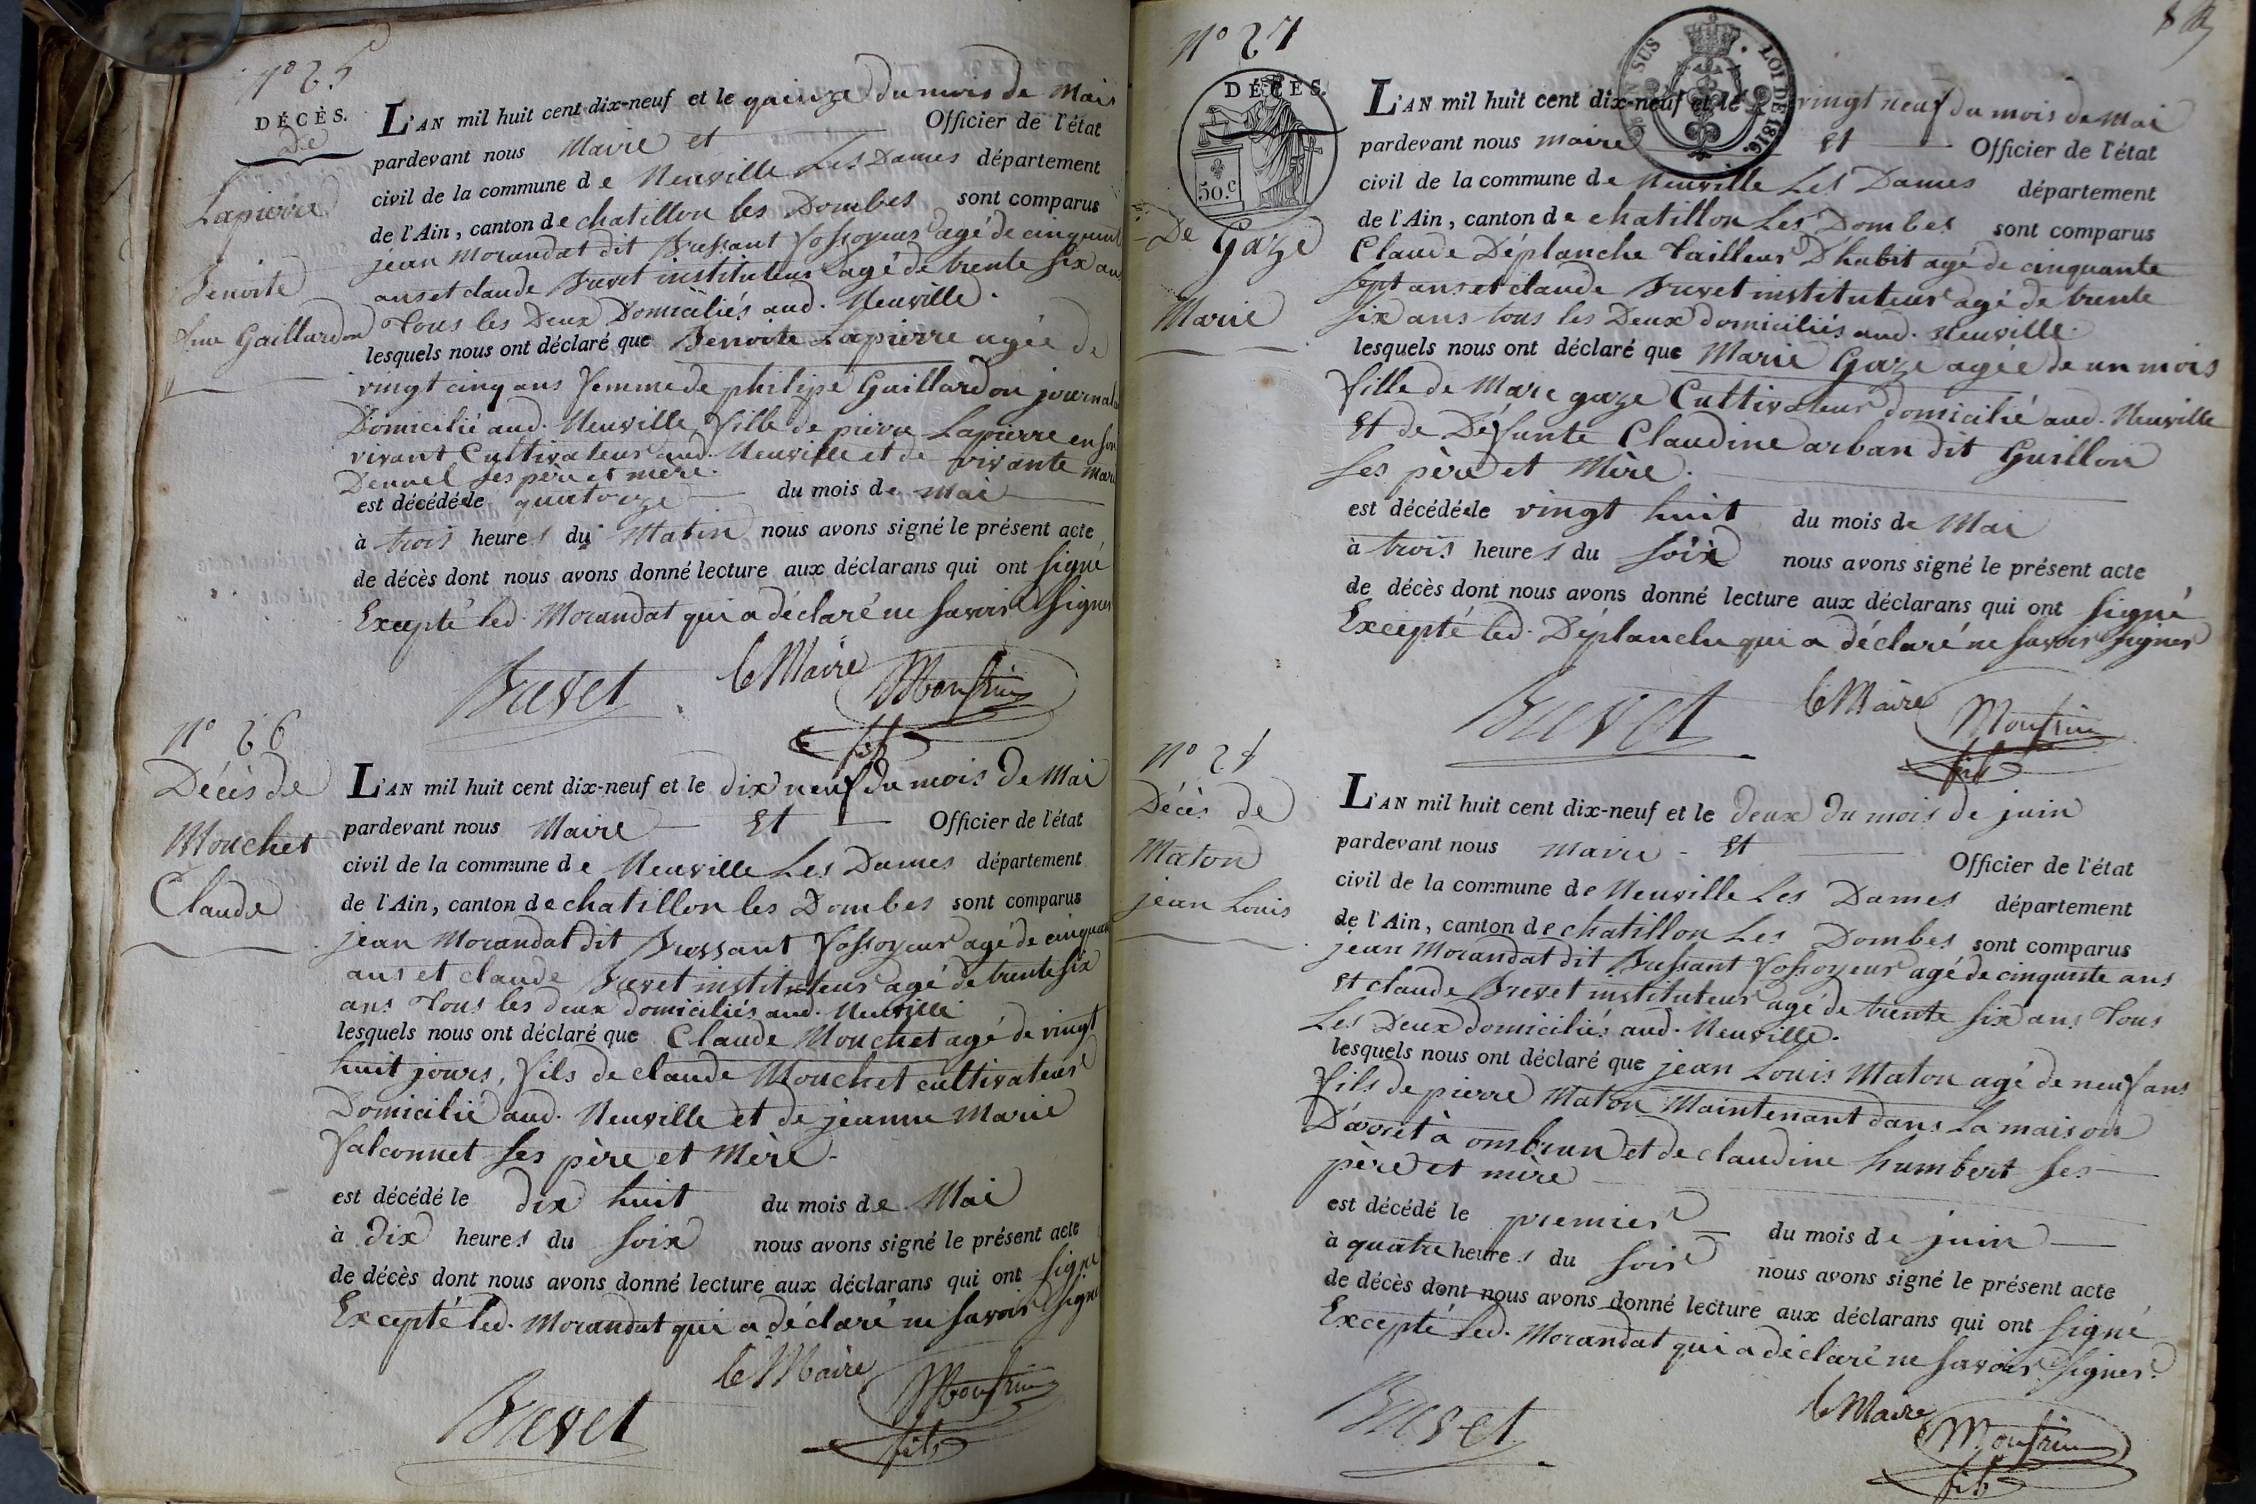 N° 25
DÉCÈS.
De
Lapierre
Benoite
fme Gaillardon
L'AN mil huit cent dix-neuf et le quinze du mois de Mai
pardevant nous Maire et Officier de l'état
civil de la commune de Neuville Les Dames département
de l'Ain, canton de chatillon les Dombes sont comparus
jean Morandat dit Bressant fossoyeur agé de cinquante
ans et claude Brevet instituteur agé de trente six ans
Tous les Deux Domiciliés aud. Neuville.
lesquels nous ont déclaré que Benoite Lapierre agée de
vingt cinq ans femme de philipe Gaillardon journal
Domicilié aud. Neuville, fille de pierre Lapierre en son
vivant Cultivateur aud. Neuville et de vivante Marie
Denuel ses père et mère.
est décédée le quatorze du mois de Mai
à trois heures du Matin nous avons signé le présent acte
de décès dont nous avons donné lecture aux déclarans qui ont signé
Excepté led. Morandat qui a déclaré ne savoir signer
Brevet le Maire Monfrin
fils
N° 26
Décès de
Mouchet
Claude
L'AN mil huit cent dix-neuf et le dix neuf du mois de Mai
pardevant nous Maire Et Officier de l'état
civil de la commune de Neuville Les Dames département
de l'Ain, canton de chatillon les Dombes sont comparus
jean Morandat dit Bressant fossoyeur agé de cinquante
ans et claude Brevet instituteur agé de trente six
ans Tous les deux domiciliés aud. Neuville
lesquels nous ont déclaré que Claude Mouchet agé de vingt
huit jours, fils de claude Mouchet cultivateur
Domicilié aud. Neuville et de jeanne Marie
falconnet ses père et Mère.
est décédé le dix huit du mois de Mai
à Dix heures du soir nous avons signé le présent acte
de décès dont nous avons donné lecture aux déclarans qui ont signé
Excepté led. Morandat qui a déclaré ne savoir signer
le Maire Monfrin
Brevet fils
N° 27
DÉCÈS.
50.c
LOI DE 1816.
De Gaze
Marie
L'AN mil huit cent dix-neuf et le vingt neuf du mois de Mai
pardevant nous maire Et Officier de l'état
civil de la commune de Neuville Les Dames département
de l'Ain, canton de chatillon Les Dombes sont comparus
Claude Déplanche Tailleur D'habit agé de cinquante
sept ans et claude Brevet instituteur agé de trente
six ans tous les Deux domiciliés aud. Neuville.
lesquels nous ont déclaré que Marie Gaze agée de un mois
fille de Marc gaze Cultivateur domicilié aud. Neuville
Et de Défunte Claudine arban dit Guillon
ses père et Mère.
est décédée le vingt huit du mois de Mai
à trois heures du soir nous avons signé le présent acte
de décès dont nous avons donné lecture aux déclarans qui ont signé
Excepté led. Déplanche qui a déclaré ne savoir signer
Brevet le Maire Monfrin
fils
N° 28
Décès de
Maton
jean Louis
L'AN mil huit cent dix-neuf et le deux du mois de juin
pardevant nous maire Et Officier de l'état
civil de la commune de Neuville Les Dames département
de l'Ain, canton de chatillon Les Dombes sont comparus
jean Morandat dit Bressant fossoyeur agé de cinquante ans
Et claude Brevet instituteur agé de trente six ans Tous
Les Deux domiciliés aud. Neuville.
lesquels nous ont déclaré que jean Louis Maton agé de neuf ans
fils de pierre Maton Maintenant dans La maison
D'arrêt à ombrun et de claudine humbert ses
père et mère
est décédé le premier du mois de juin
à quatre heures du soir nous avons signé le présent acte
de décès dont nous avons donné lecture aux déclarans qui ont signé
Excepté led. Morandat qui a déclaré ne savoir signer.
Brevet le Maire Monfrin
fils